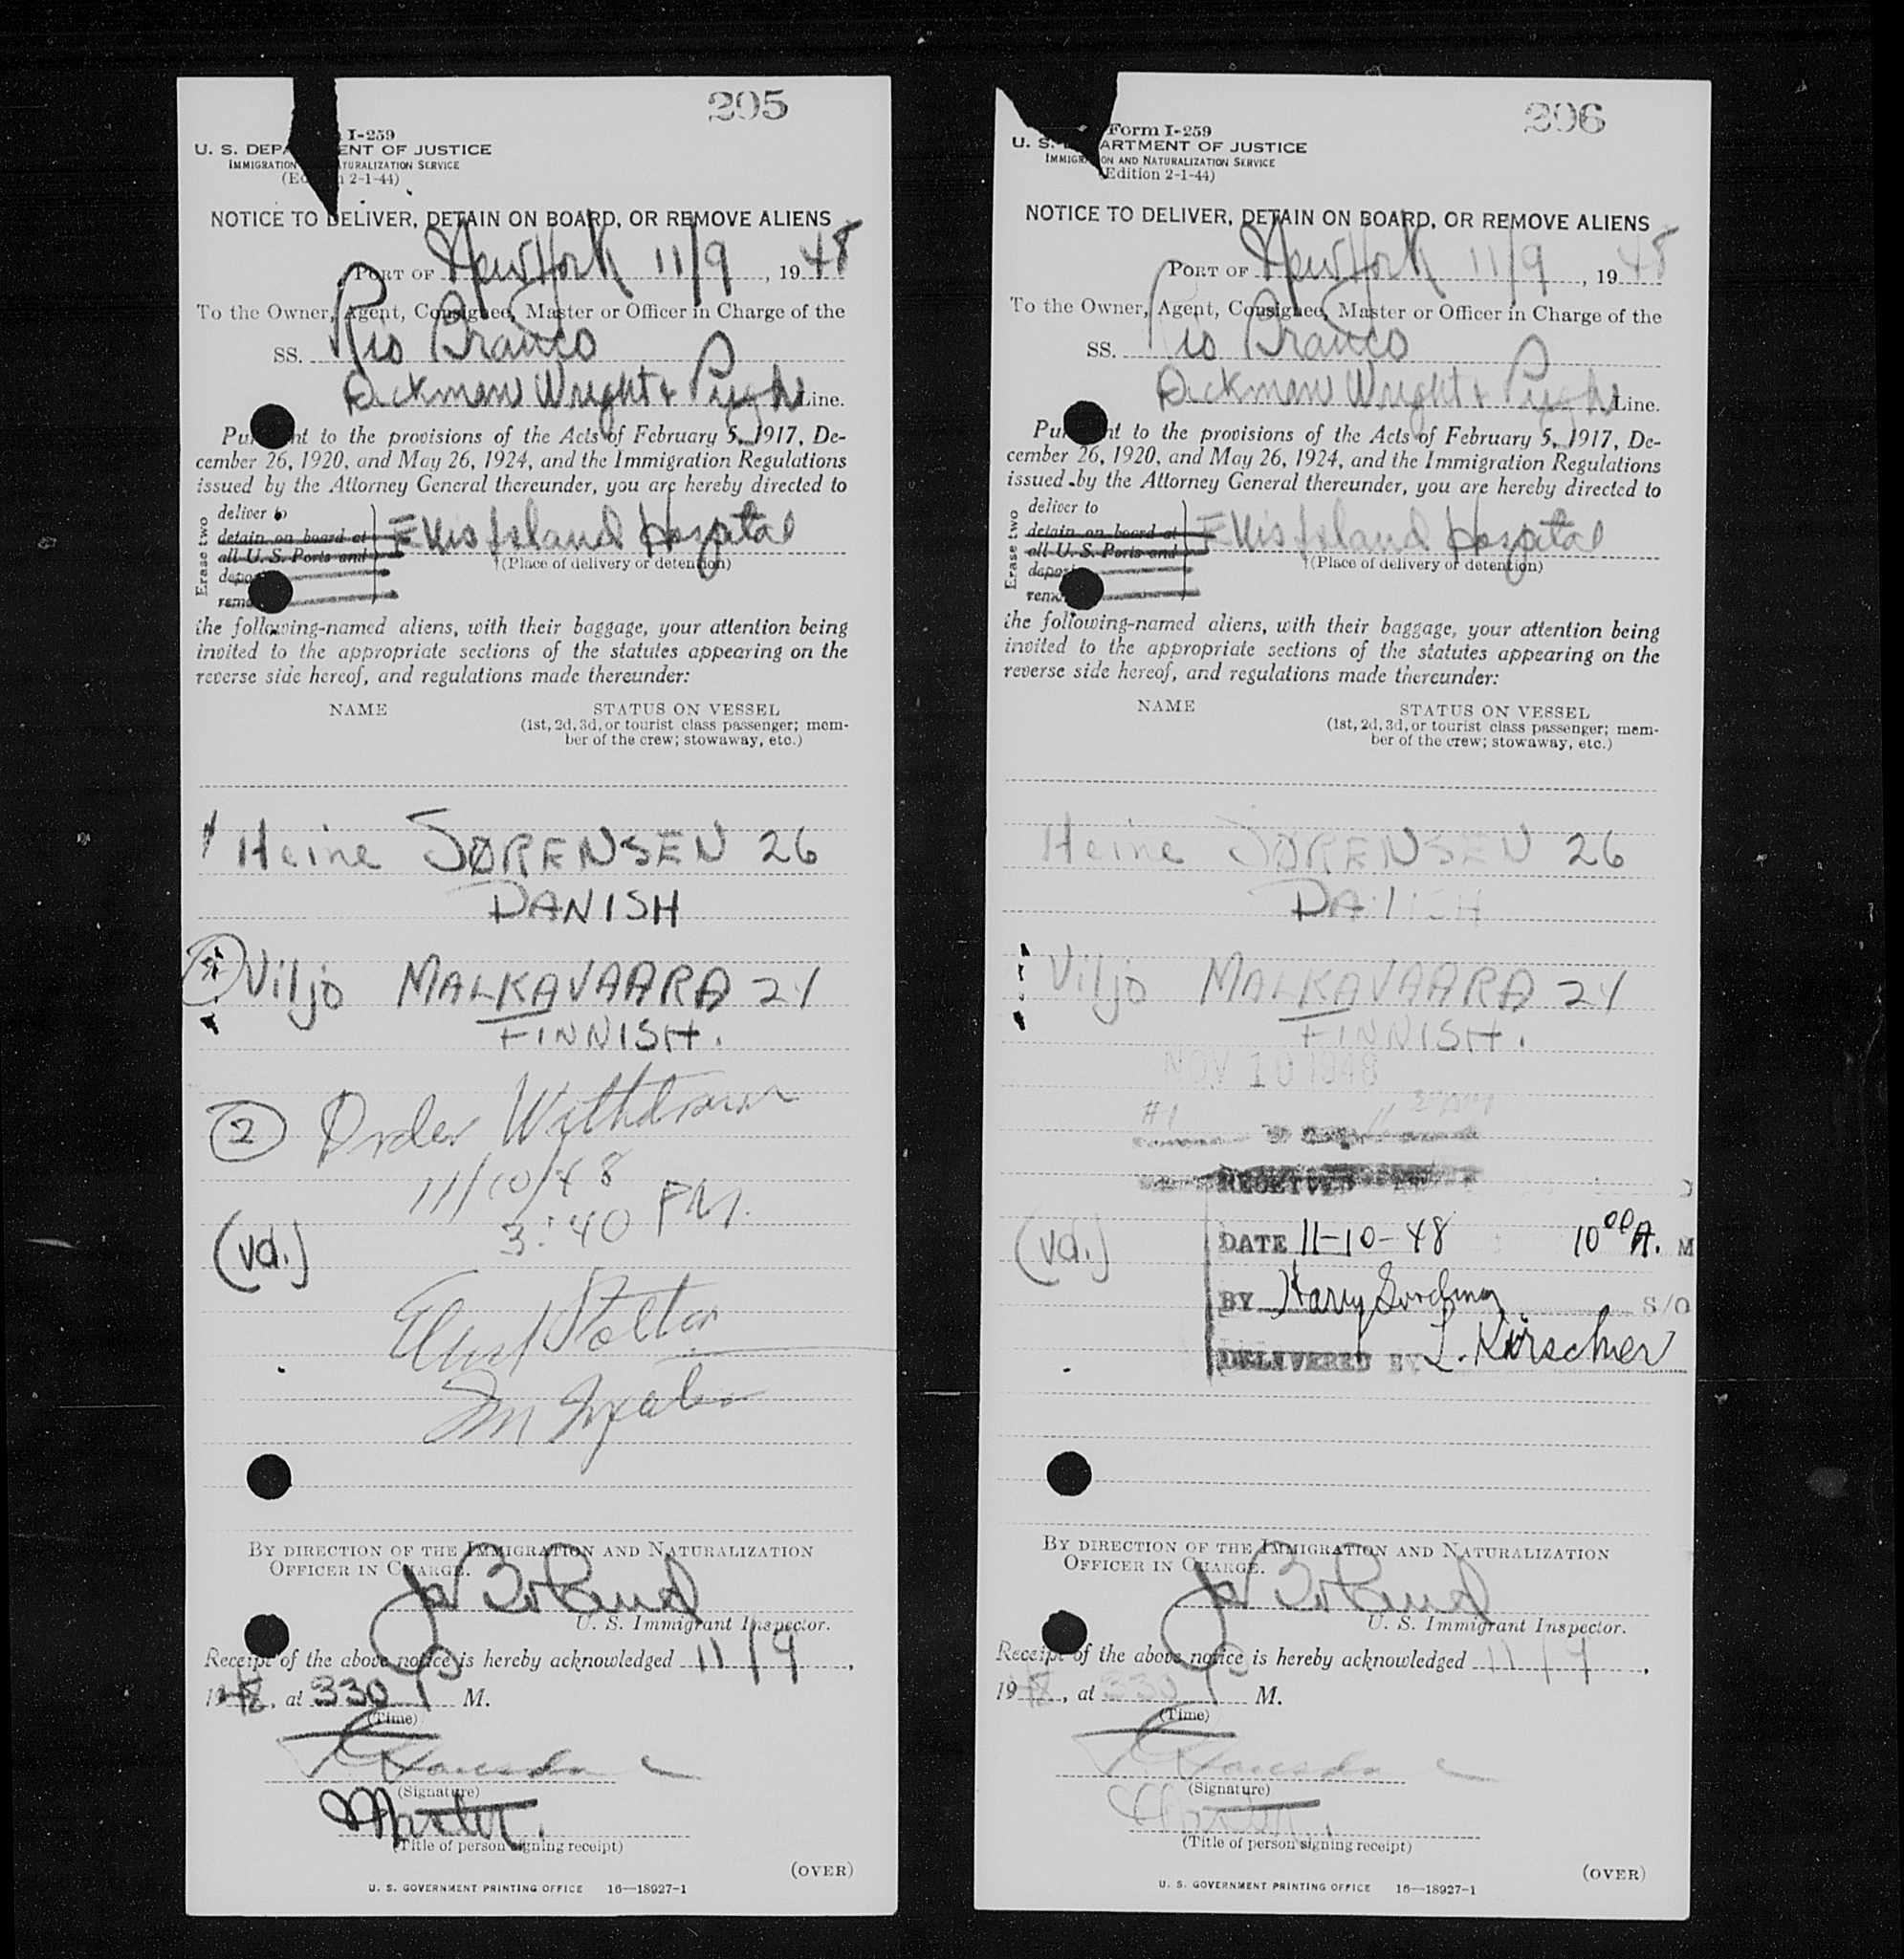 205
I-259
U. S. DEPA ENT OF JUSTICE
IMMIGRATION TURALIZATION SERVICE
(Ed n 2-1-44)
NOTICE TO DELIVER, DETAIN ON BOARD, OR REMOVE ALIENS
PORT OF New York 11/9, 1948
To the Owner, Agent, Consignee, Master or Officer in Charge of the
SS. Rio Branco
Dickman Wright & Pugh Line.
Pu nt to the provisions of the Acts of February 5, 1917, De-
cember 26, 1920, and May 26, 1924, and the Immigration Regulations
issued by the Attorney General thereunder, you are hereby directed to
Erase two
deliver to
detain on board at
all U. S. Ports and
depo
remo
Ellis Island Hospital
(Place of delivery or detention)
the following-named aliens, with their baggage, your attention being
invited to the appropriate sections of the statutes appearing on the
reverse side hereof, and regulations made thereunder:
NAME STATUS ON VESSEL
(1st, 2d, 3d, or tourist class passenger; mem-
ber of the crew; stowaway, etc.)
1 Heine SØRENSEN 26
DANISH
2 Viljo MALKAVAARA 21
FINNISH.
2 Order Withdrawn
11/10/48
3:40 PM.
(vd.)
BY DIRECTION OF THE IMMIGRATION AND NATURALIZATION
OFFICER IN CHARGE.
U. S. Immigrant Inspector.
Receipt of the above notice is hereby acknowledged 11/9,
1948, at 330 P M.
(Time)
(Signature)
Master.
(Title of person signing receipt)
(OVER)
U. S. GOVERNMENT PRINTING OFFICE 16—18927-1
206
Form I-259
U. S. D ARTMENT OF JUSTICE
IMMIGR ON AND NATURALIZATION SERVICE
(Edition 2-1-44)
NOTICE TO DELIVER, DETAIN ON BOARD, OR REMOVE ALIENS
PORT OF New York 11/9, 1948
To the Owner, Agent, Consignee, Master or Officer in Charge of the
SS. Rio Branco
Dickman Wright & Pugh Line.
Pu nt to the provisions of the Acts of February 5, 1917, De-
cember 26, 1920, and May 26, 1924, and the Immigration Regulations
issued by the Attorney General thereunder, you are hereby directed to
Erase two
deliver to
detain on board at
all U. S. Ports and
depor
remo
Ellis Island Hospital
(Place of delivery or detention)
the following-named aliens, with their baggage, your attention being
invited to the appropriate sections of the statutes appearing on the
reverse side hereof, and regulations made thereunder:
NAME STATUS ON VESSEL
(1st, 2d, 3d, or tourist class passenger; mem-
ber of the crew; stowaway, etc.)
Heine SØRENSEN 26
DANISH
Viljo MALKAVAARA 21
FINNISH.
NOV 10 1948
#1
RECEIVED
(vd.)
DATE 11-10-48 10 00 A. M
BY Harry S/O
DELIVERED BY L. Kirschner
BY DIRECTION OF THE IMMIGRATION AND NATURALIZATION
OFFICER IN CHARGE.
U. S. Immigrant Inspector.
Receipt of the above notice is hereby acknowledged 11/9,
1948, at 330 P M.
(Time)
(Signature)
Master.
(Title of person signing receipt)
(OVER)
U. S. GOVERNMENT PRINTING OFFICE 16—18927-1